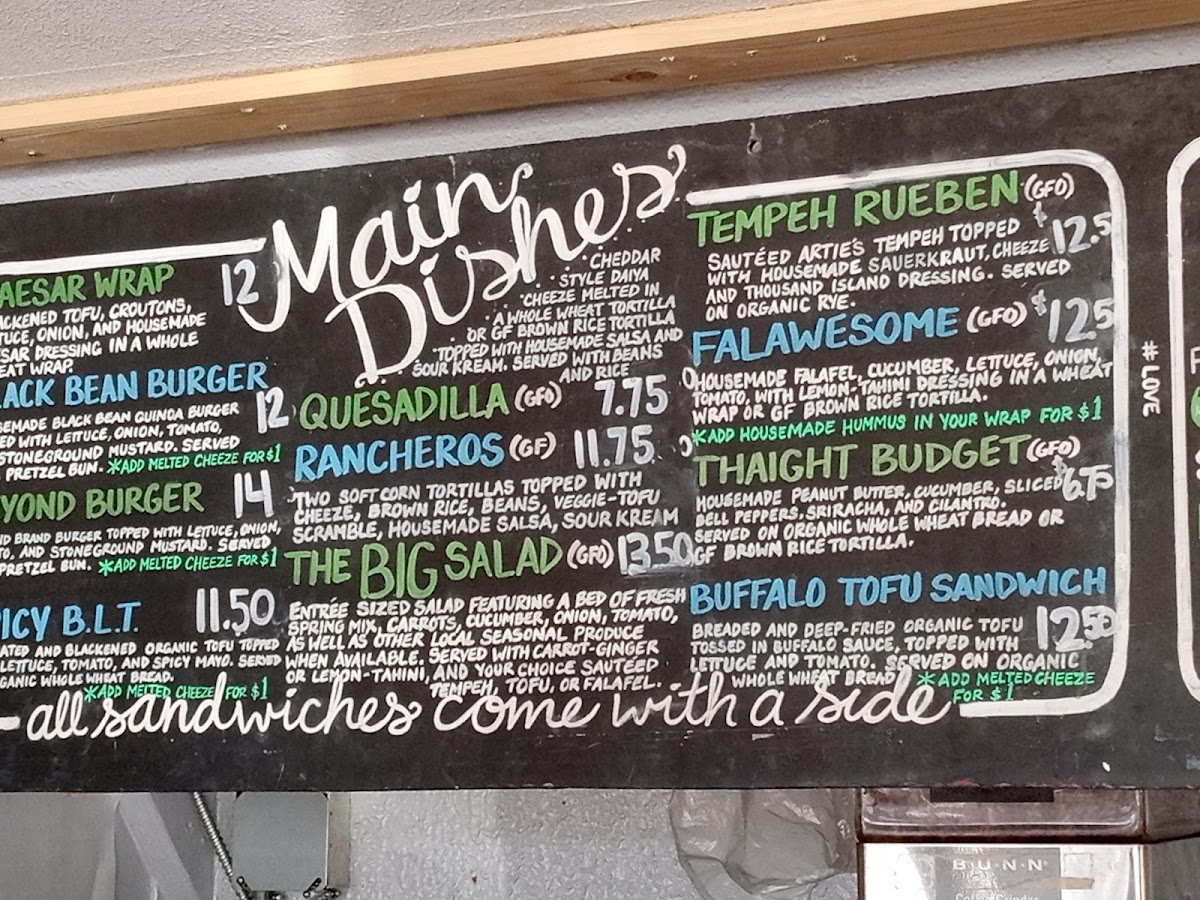 Main
Dishes
AESAR WRAP 12
ACKENED TOFU, CROUTONS,
TUCE, ONION, AND HOUSEMADE
SAR DRESSING IN A WHOLE
EAT WRAP.
ACK BEAN BURGER 12
SEMADE BLACK BEAN QUINOA BURGER
ED WITH LETTUCE, ONION, TOMATO,
STONEGROUND MUSTARD. SERVED
PRETZEL BUN. *ADD MELTED CHEEZE FOR $1
YOND BURGER 14
ND BRAND BURGER TOPPED WITH LETTUCE, ONION,
TO, AND STONEGROUND MUSTARD. SERVED
PRETZEL BUN. *ADD MELTED CHEEZE FOR $1
ICY B.L.T. 11.50
ATED AND BLACKENED ORGANIC TOFU TOPPED
LETTUCE, TOMATO, AND SPICY MAYO. SERVED
GANIC WHOLE WHEAT BREAD.
*ADD MELTED CHEEZE FOR $1
CHEDDAR
STYLE DAIYA
CHEEZE MELTED IN
A WHOLE WHEAT TORTILLA
OR GF BROWN RICE TORTILLA
TOPPED WITH HOUSEMADE SALSA AND
SOUR KREAM. SERVED WITH BEANS
AND RICE
QUESADILLA (GFO) 7.75
RANCHEROS (GF) 11.75
TWO SOFT CORN TORTILLAS TOPPED WITH
CHEEZE, BROWN RICE, BEANS, VEGGIE-TOFU
SCRAMBLE, HOUSEMADE SALSA, SOUR KREAM
THE BIG SALAD (GFO) 13.50
ENTRÉE SIZED SALAD FEATURING A BED OF FRESH
SPRING MIX, CARROTS, CUCUMBER, ONION, TOMATO,
AS WELL AS OTHER LOCAL SEASONAL PRODUCE
WHEN AVAILABLE. SERVED WITH CARROT-GINGER
OR LEMON-TAHINI, AND YOUR CHOICE SAUTÉED
TEMPEH, TOFU, OR FALAFEL.
TEMPEH RUEBEN (GFO) $12.5
SAUTÉED ARTIE'S TEMPEH TOPPED
WITH HOUSEMADE SAUERKRAUT, CHEEZE
AND THOUSAND ISLAND DRESSING. SERVED
ON ORGANIC RYE.
FALAWESOME (GFO) $12.5
HOUSEMADE FALAFEL, CUCUMBER, LETTUCE, ONION,
TOMATO, WITH LEMON-TAHINI DRESSING IN A WHEAT
WRAP OR GF BROWN RICE TORTILLA.
*ADD HOUSEMADE HUMMUS IN YOUR WRAP FOR $1
THAIGHT BUDGET (GFO) $6.75
HOUSEMADE PEANUT BUTTER, CUCUMBER, SLICED
BELL PEPPERS, SRIRACHA, AND CILANTRO.
SERVED ON ORGANIC WHOLE WHEAT BREAD OR
GF BROWN RICE TORTILLA.
BUFFALO TOFU SANDWICH 12.50
BREADED AND DEEP-FRIED ORGANIC TOFU
TOSSED IN BUFFALO SAUCE, TOPPED WITH
LETTUCE AND TOMATO. SERVED ON ORGANIC
WHOLE WHEAT BREAD *ADD MELTED CHEEZE
FOR $1
all sandwiches come with a side
#LOVE
BUNN